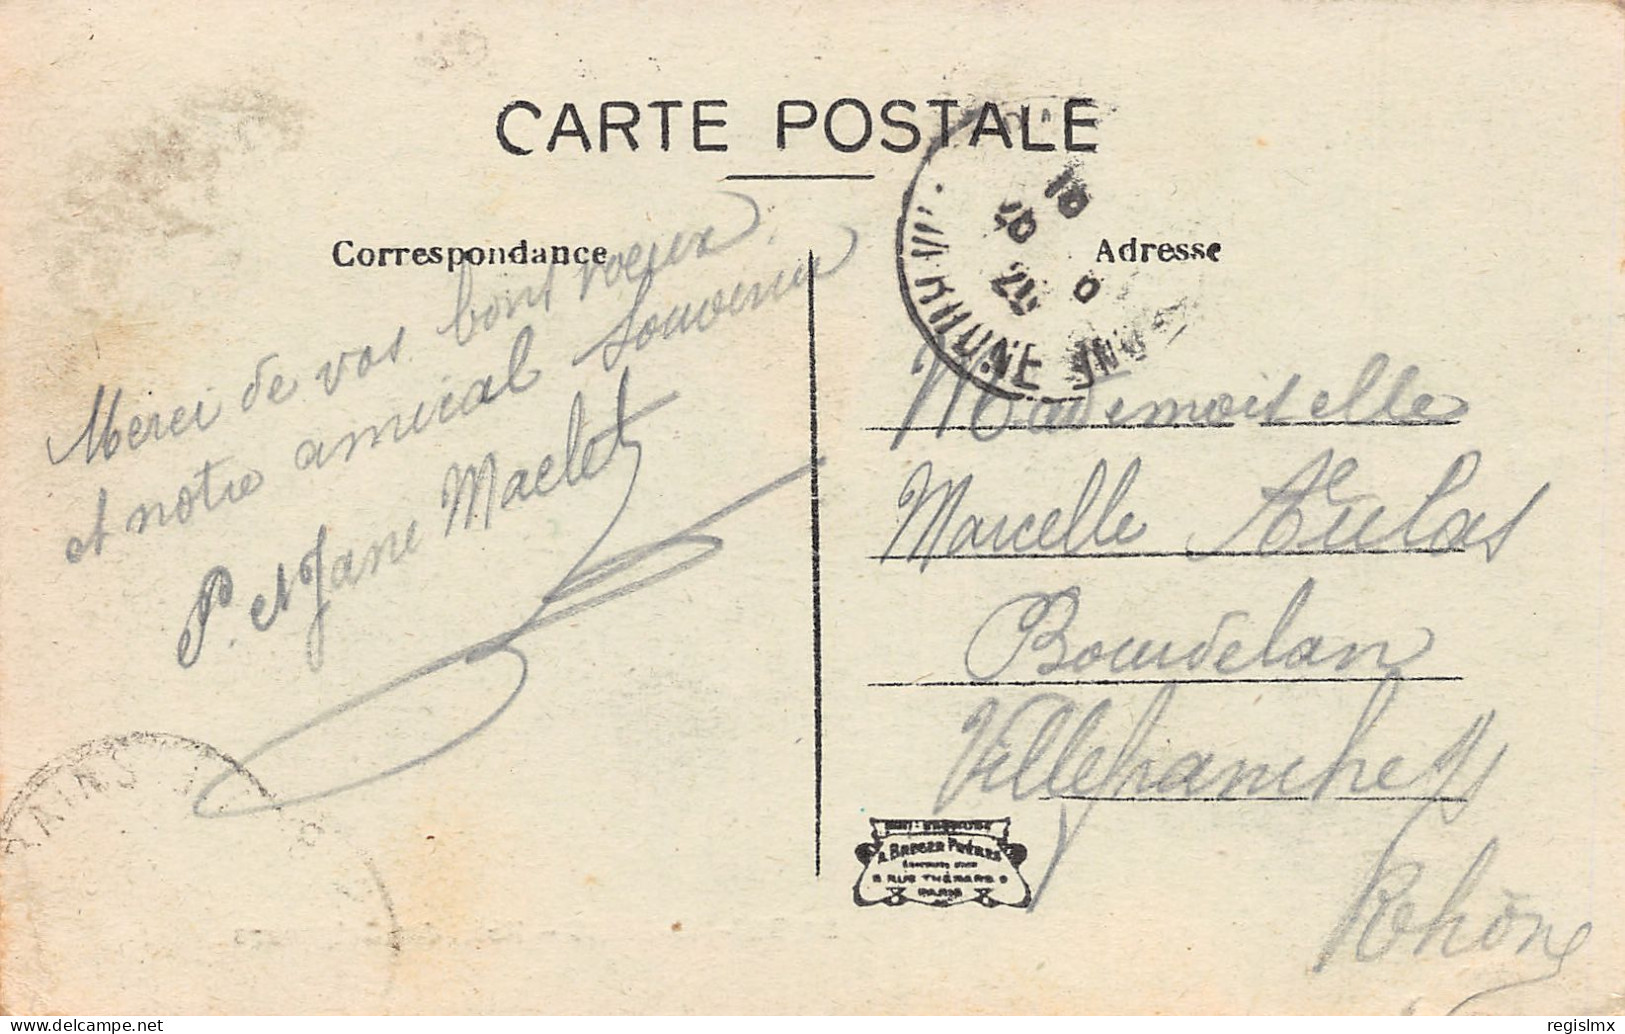 CARTE POSTALE
Correspondance
Merci de vos bons voeux
et notre amical souvenir
P. et Jane Maclet
Adresse
Mademoiselle
Marcelle Aulas
Bourdelan
Villefranche s/s
Rhône
A. BREGER FRÈRES
9 RUE THÉNARD 9
PARIS
delcampe.net
regislmx